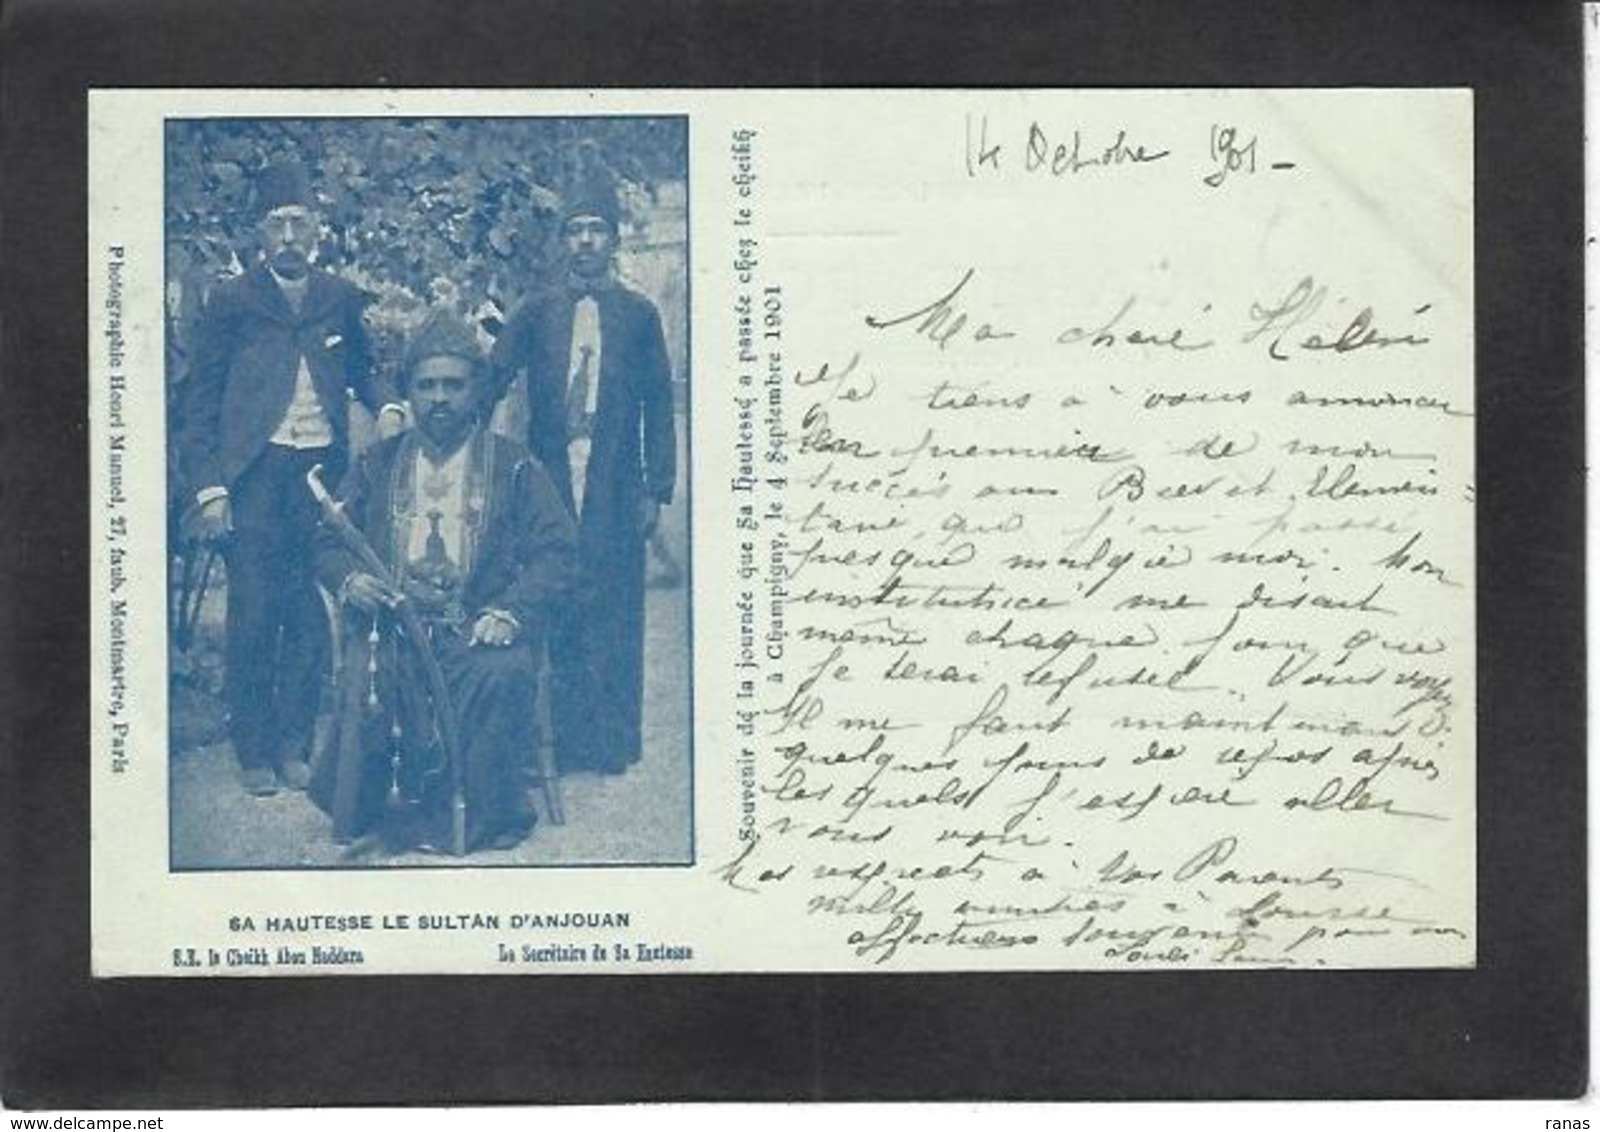 Photographie Henri Manuel, 27, faub. Montmartre, Paris
SA HAUTESSE LE SULTAN D'ANJOUAN
S.E. le Cheikh Abou Naddara
Le Secrétaire de Sa Hautesse
Souvenir de la journée que Sa Hautesse a passée chez le cheikh
à Champigny, le 4 Septembre 1901
14 Octobre 1901 -
Ma chère Hélène
Je tiens à vous annoncer
la première de mon
succès au Brevet Elémen=
taire, que j'ai passé
presque malgré moi. Mon
institutrice me disait
même chaque jour que
je serai refusée. Vous voyez
Il me faut maintenant
quelques jours de repos après
lesquels j'espère aller
vous voir.
Mes respects à vos Parents
mille amitiés à Louise
affectueux
delcampe.net
ranas